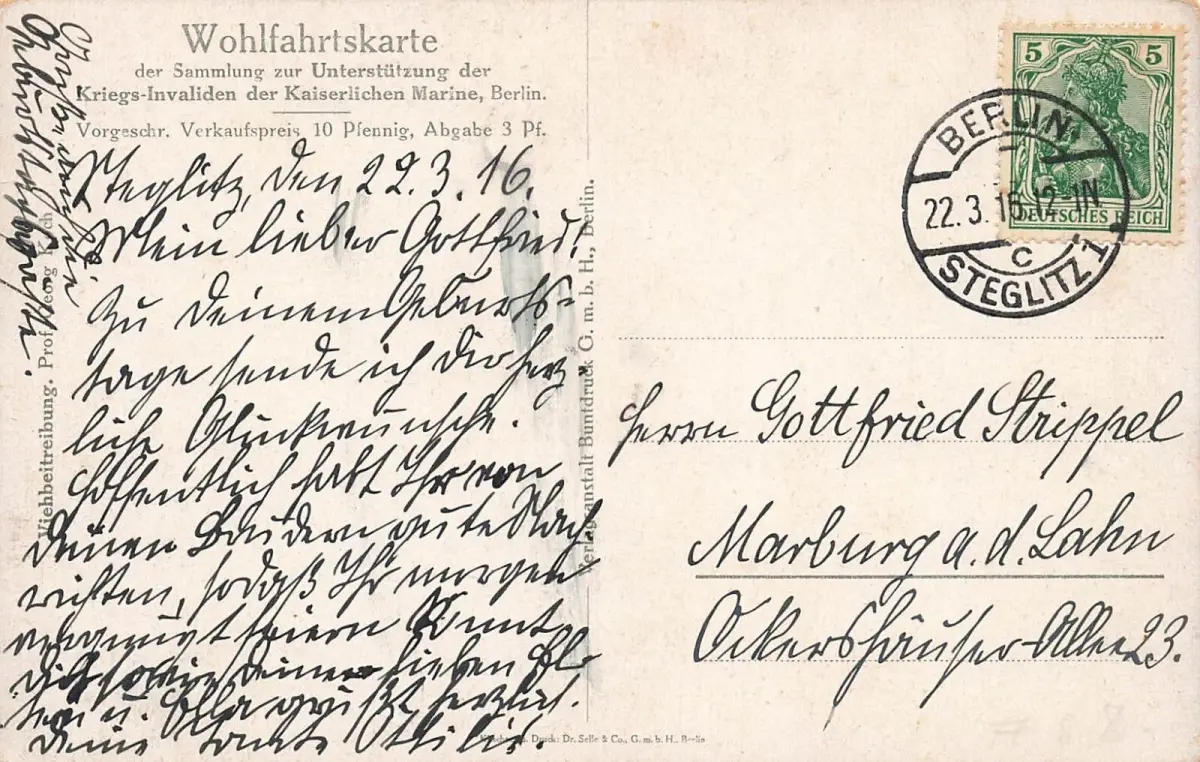 Wohlfahrtskarte
der Sammlung zur Unterstützung der
Kriegs-Invaliden der Kaiserlichen Marine, Berlin.
Vorgeschr. Verkaufspreis 10 Pfennig, Abgabe 3 Pf.
Steglitz, den 22.3.16.
Mein lieber Gottfried!
Zu deinem Geburts-
tage sende ich dir herz-
liche Glückwünsche.
Hoffentlich habt Ihr von
deinen Brüdern gute Nach-
richten, sodaß Ihr morgen
vergnügt feiern könnt.
Dich sowie deine lieben El-
tern u. Ella grüßt herzlich.
deine Tante Ottilie.
Viehbeitreibung. Prof. Georg Koch
Verlagsanstalt Buntdruck G. m. b. H., Berlin.
Druck: Dr. Selle & Co., G. m. b. H., Berlin
5 5
DEUTSCHES REICH
BERLIN
22.3.16.12-1N
C
STEGLITZ 1
Herrn Gottfried Strippel
Marburg a. d. Lahn
Ockershäuser-Allee 23.